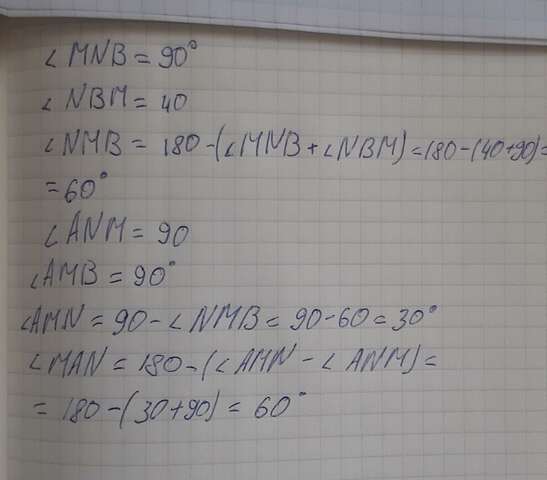 ∠ MNB = 90°
∠ NBM = 40
∠ NMB = 180-(∠MNB + ∠NBM) = 180-(40+90)=
= 60°
∠ ANM = 90
∠AMB = 90°
∠AMN = 90 - ∠ NMB = 90-60 = 30°
∠ MAN = 180-(∠ AMN - ∠ ANM) =
= 180-(30+90) = 60°